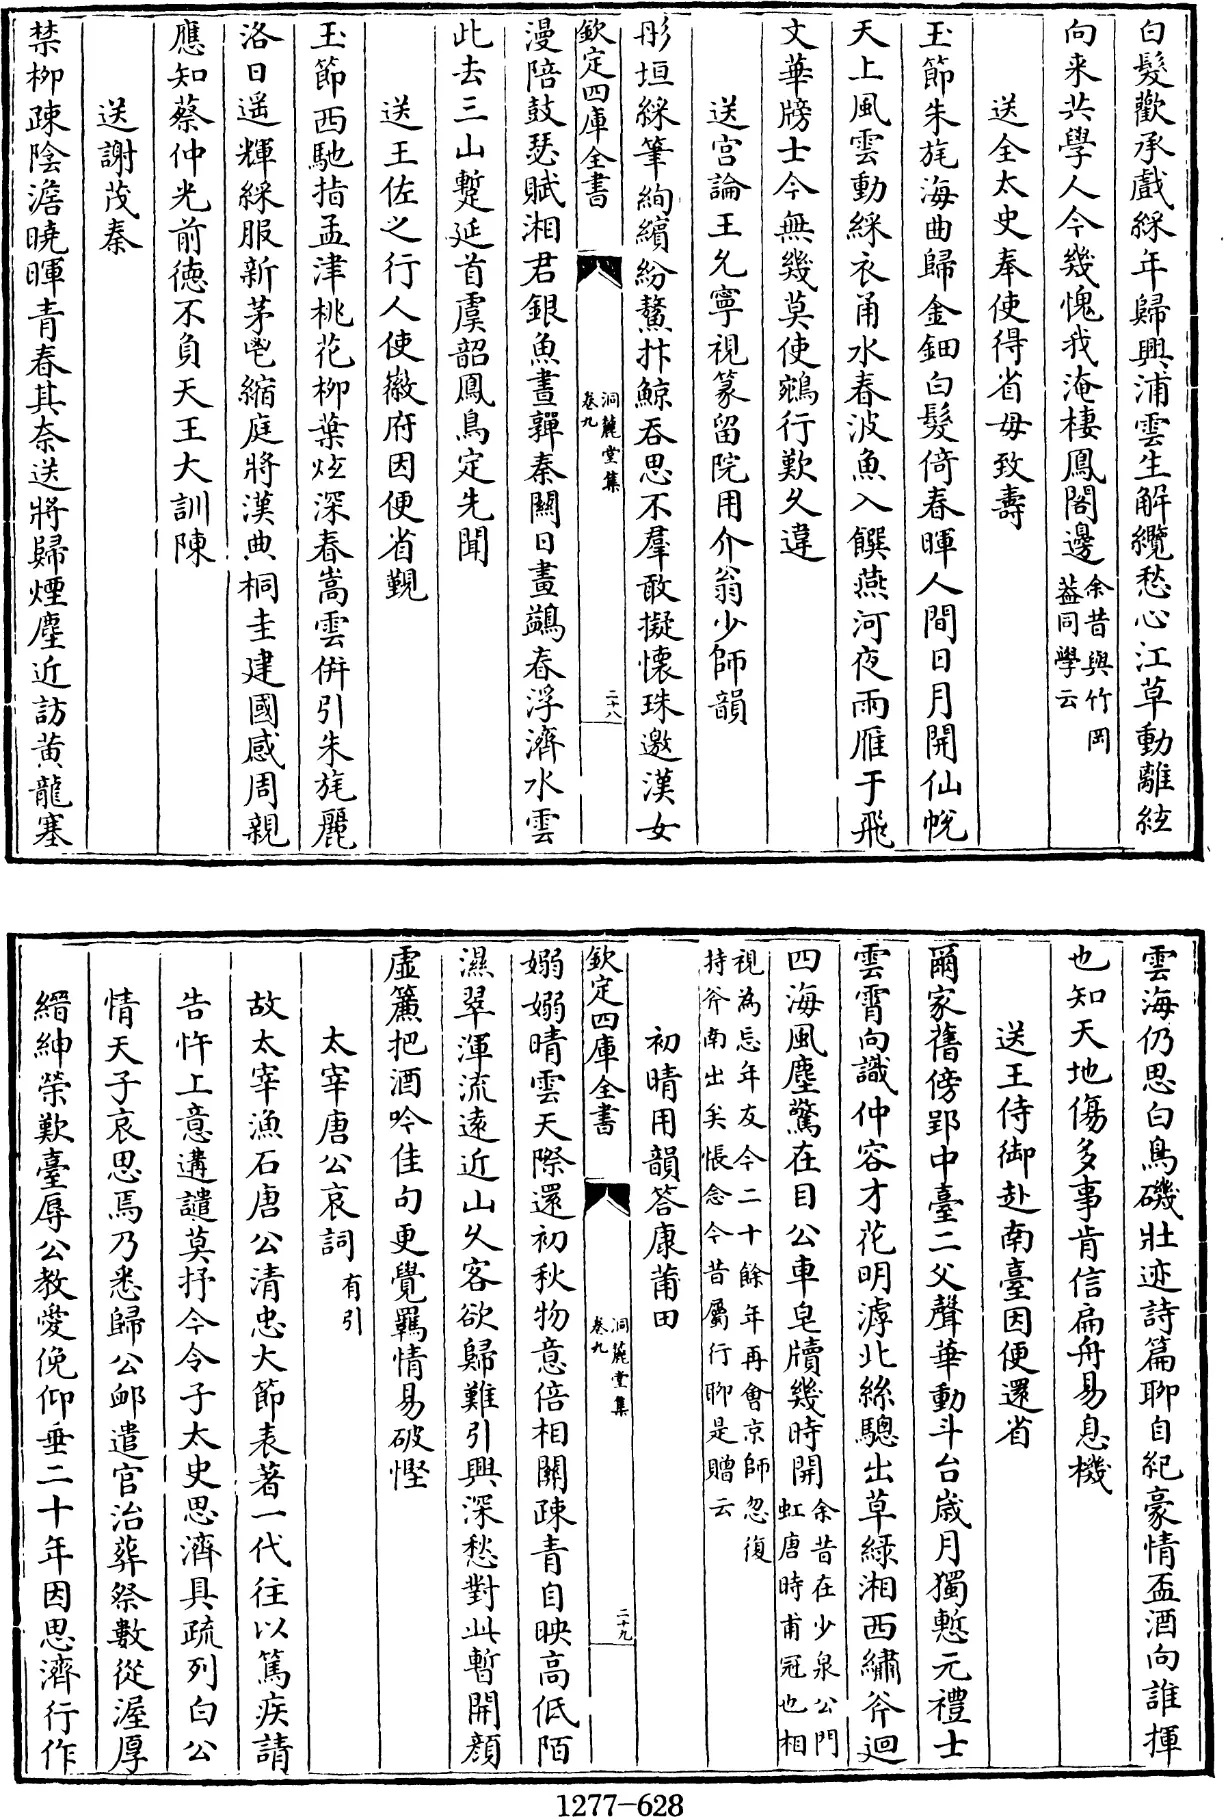 白髮歡承戲綵年歸興浦雲生解纜愁心江草動離絃
向来共學人今幾愧我淹棲鳳閣邊余昔與竹岡葢同學云
送全太史奉使得省母致壽
玉節朱旄海曲歸金鈿白髮倚春暉人間日月開仙帨
天上風雲動綵衣甬水春波魚入饌燕河夜雨雁于飛
文華牓士今無幾莫使鵷行歎久違
送宫論王允寧視篆留院用介翁少師韻
彤垣綵筆絢繽紛鰲抃鯨吞思不羣敢擬懷珠邀漢女
欽定四庫全書
洞麓堂集
卷九
二十八
漫陪鼓瑟賦湘君銀魚晝韠秦關日畫鷁春浮濟水雲
此去三山蹔延首虞韶鳳鳥定先聞
送王佐之行人使徽府因便省覲
玉節西馳指孟津桃花柳葉炫深春嵩雲併引朱旄麗
洛日遥輝綵服新茅鬯縮庭將漢典桐圭建國感周親
應知蔡仲光前德不負天王大訓陳
送謝茂秦
禁柳疎陰澹曉暉青春其奈送將歸煙塵近訪黄龍塞
雲海仍思白鳥磯壯迹詩篇聊自紀豪情盃酒向誰揮
也知天地傷多事肯信扁舟易息機
送王侍御赴南臺因便還省
爾家舊傍郢中臺二父聲華動斗台嵗月獨慙元禮士
雲霄向識仲容才花明滹北絲驄出草緑湘西繡斧迴
四海風塵驚在目公車皂牘幾時開余昔在少泉公門虹唐時甫冠也相
視為忘年友今二十餘年再會京師忽復持斧南出矣悵念今昔屬行聊是贈云
初晴用韻答康莆田
欽定四庫全書
洞麓堂集
卷九
二十九
嫋嫋晴雲天際還初秋物意倍相關疎青自映高低陌
濕翠渾流遠近山久客欲歸難引興深愁對此暫開顔
虚簾把酒吟佳句更覺羈情易破慳
太宰唐公哀詞有引
故太宰漁石唐公清忠大節表著一代往以篤疾請
告忤上意遘譴莫抒今令子太史思濟具疏列白公
情天子哀思焉乃悉歸公卹遣官治葬祭數從渥厚
縉紳榮歎臺辱公教愛俛仰垂二十年因思濟行作
1277-628